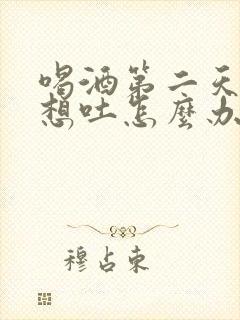 喝酒第二天
想吐怎麼办
穆占東